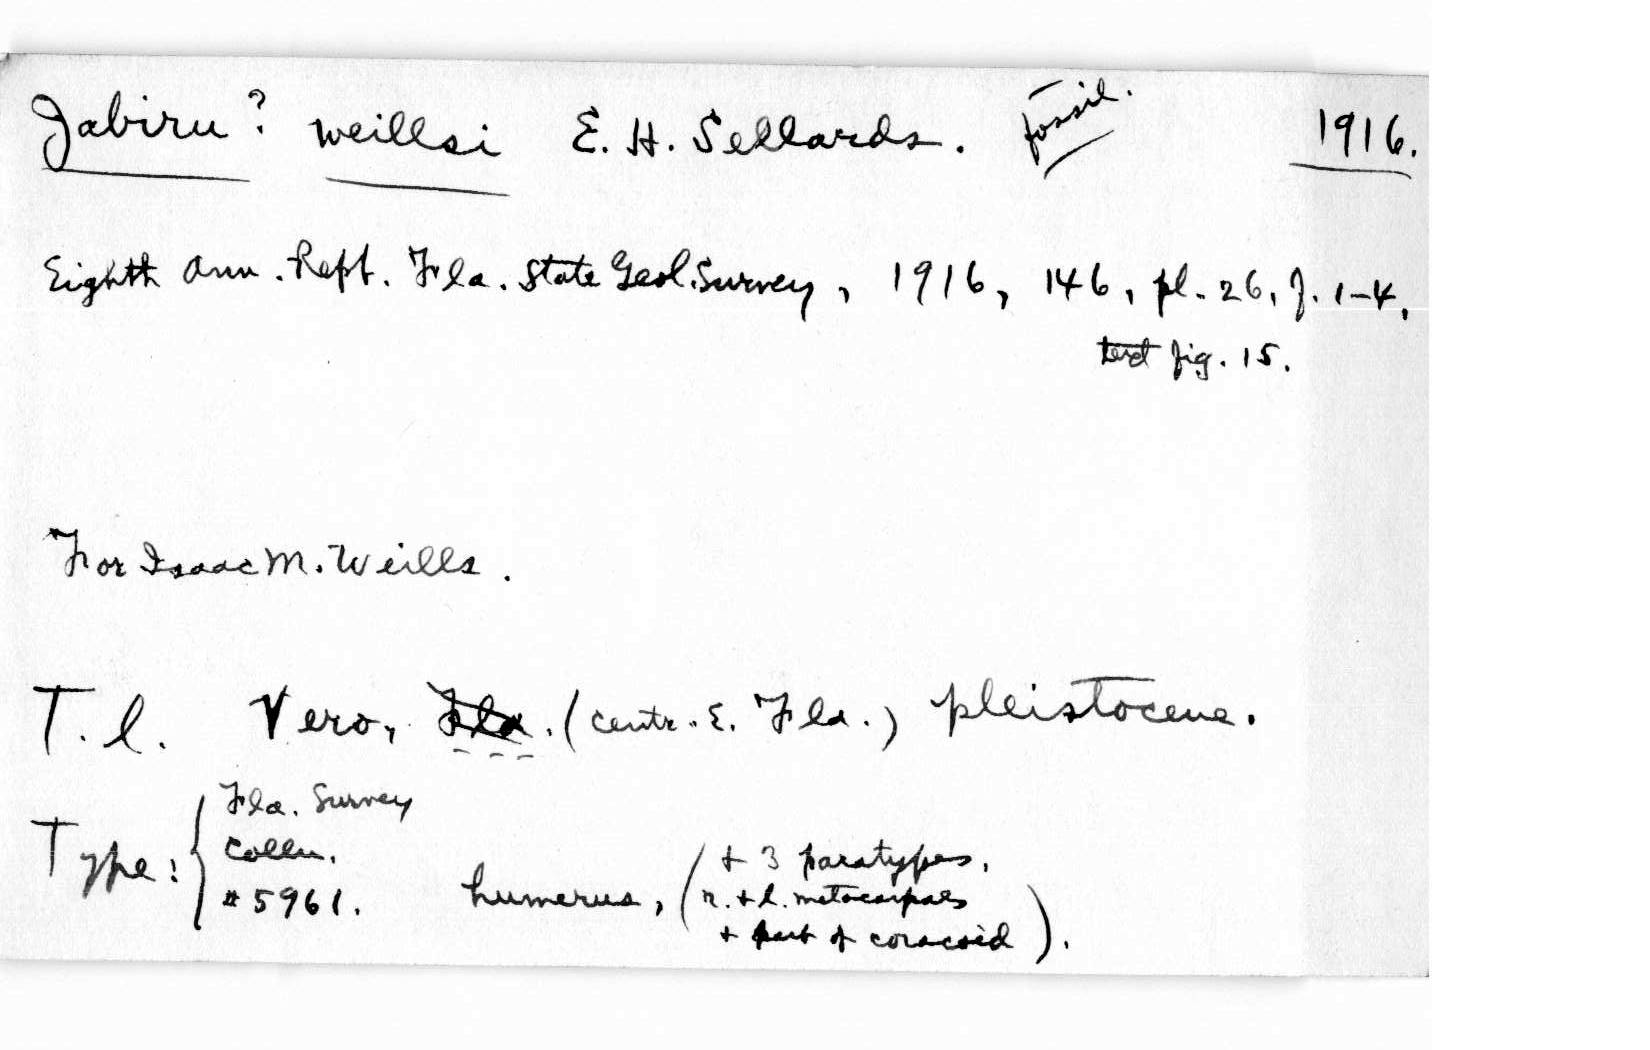 Jabiru? weillsi E. H. Sellards. fossil. 1916.
Eighth Ann. Rept. Fla. State Geol. Survey, 1916, 146, pl. 26, f. 1-4,
text fig. 15.
For Isaac M. Weills.
T. l. Vero, Fla. (centr. E. Fla.) pleistocene.
Type: Fla. Survey
Colln.
#5961. humerus, (+ 3 paratypes,
r. + l. metacarpals
+ part of coracoid).